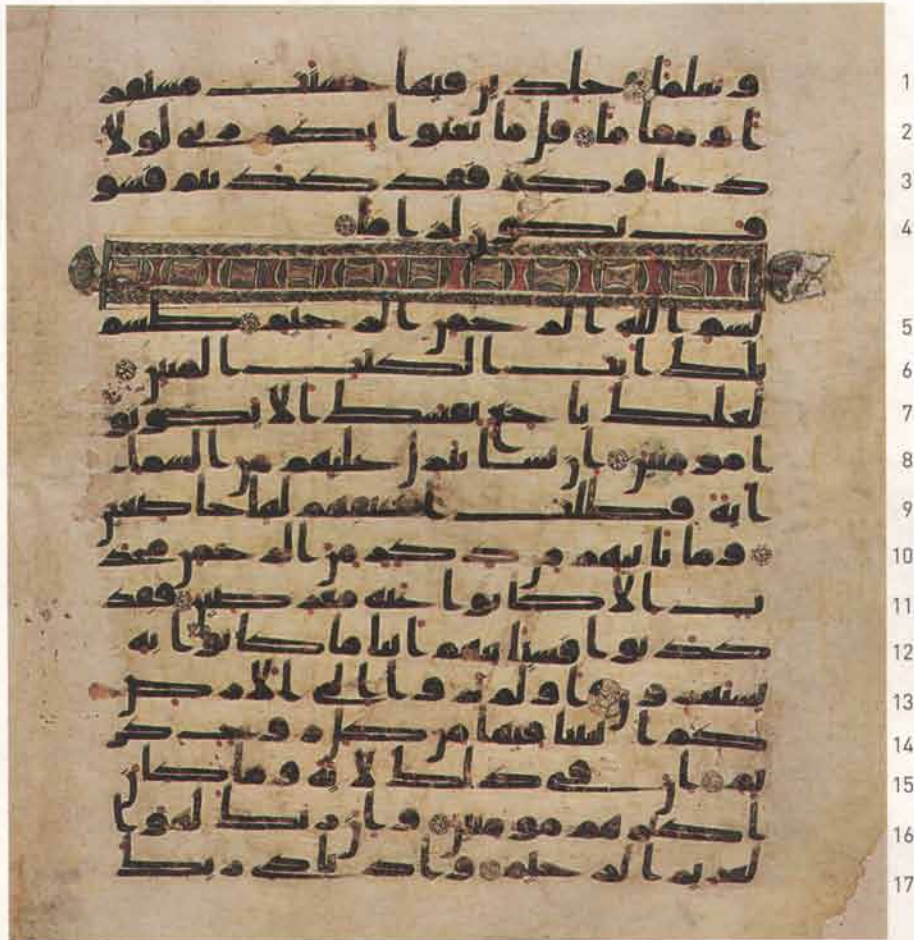 وسلما خلدين فيها حسنت مستقر 1
ا ومقاما قل ما يعبوا بكم ربي لولا 2
دعاوكم فقد كذبتم فسو 3
ف يكون لزاما 4
بسم الله الرحمن الرحيم طسم 5
تلك ايت الكتب المبين 6
لعلك باخع نفسك الا يكونو 7
ا مومنين ان نشا ننزل عليهم من السما 8
اية فظلت اعنقهم لها خاضعين 9
وما ياتيهم من ذكر من الرحمن محد 10
ث الا كانوا عنه معرضين فقد 11
كذبوا فسياتيهم انبا ما كانوا به 12
يستهزون اولم يروا الى الارض 13
كم انبتنا فيها من كل زوج كر 14
يم ان في ذلك لاية وما كان 15
اكثرهم مومنين وان ربك لهو ا 16
لعزيز الرحيم واذ نادى ربك 17